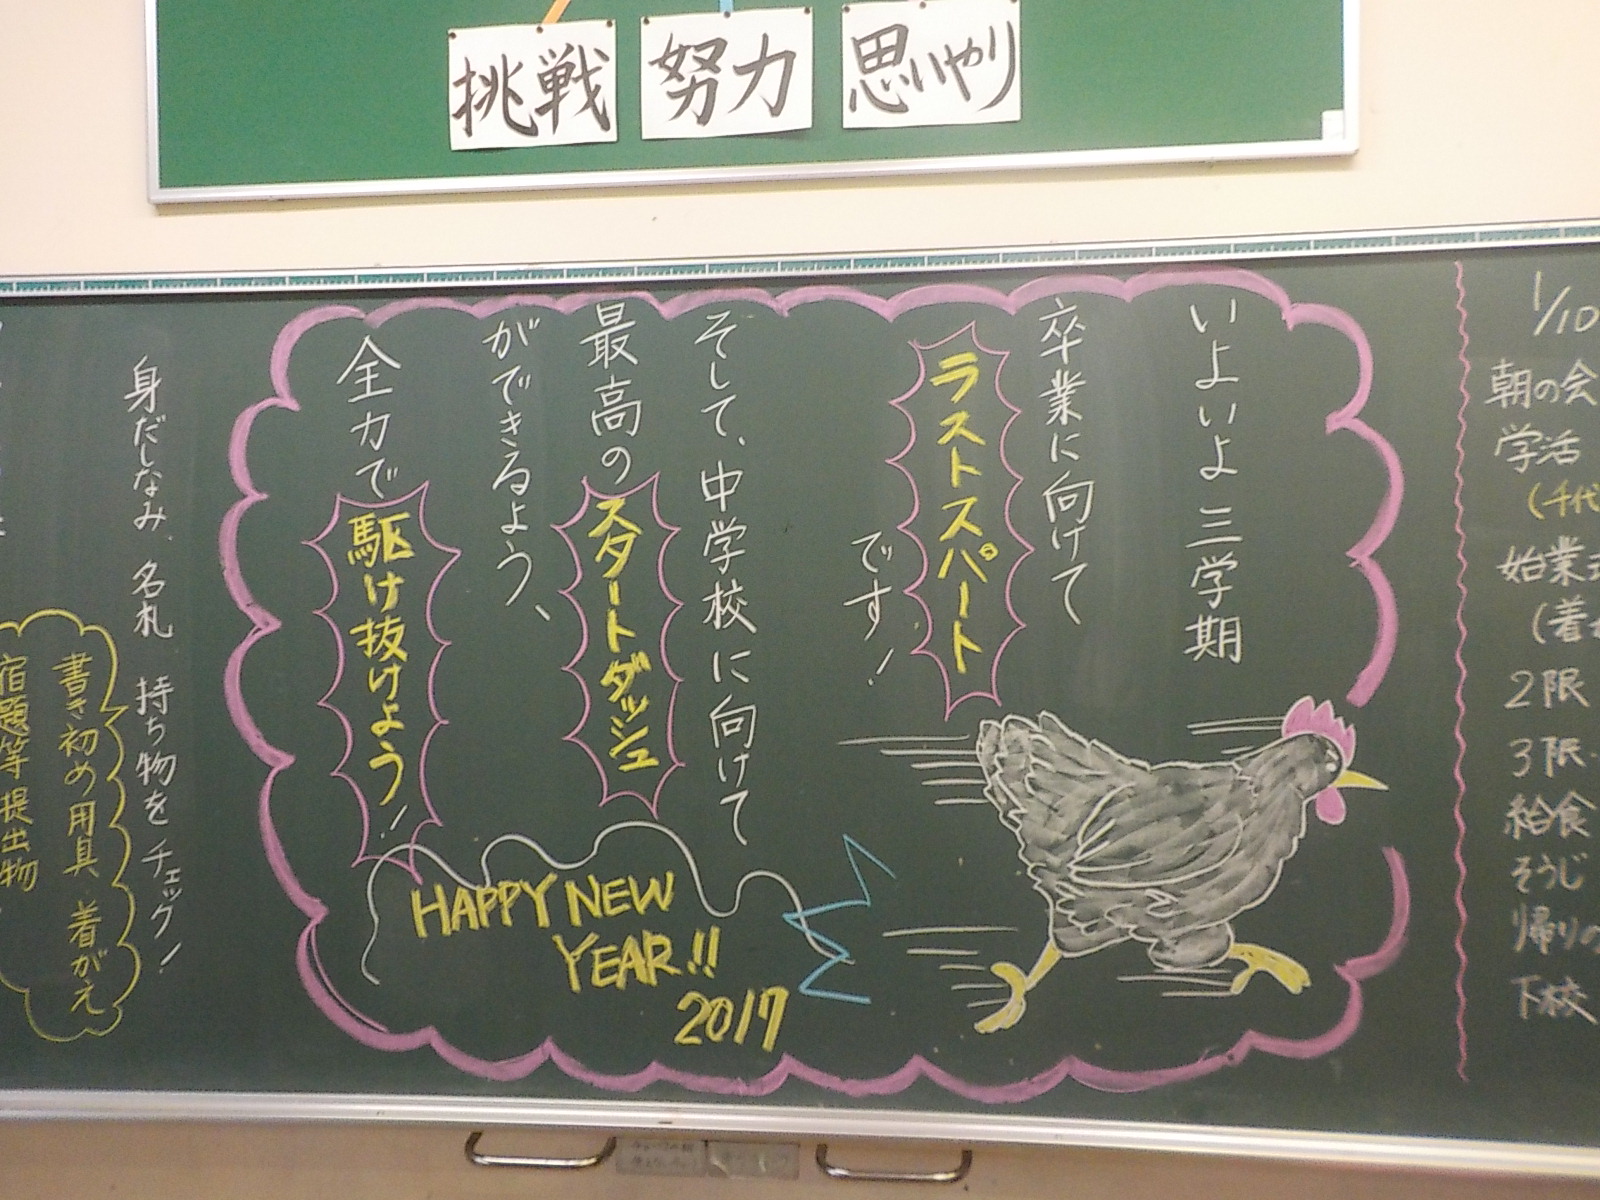 挑戦
努力
思いやり
1/10
朝の会
学活
(千代
始業式
(着
2限
3限
給食
そうじ
帰りの
下校
いよいよ三学期
卒業に向けて
ラストスパート
です!
そして、中学校に向けて
最高のスタートダッシュ
ができるよう、
全力で駆け抜けよう!
HAPPY NEW
YEAR!!
2017
身だしなみ、名札 持ち物をチェック!
書き初め用具、着がえ
宿題等提出物